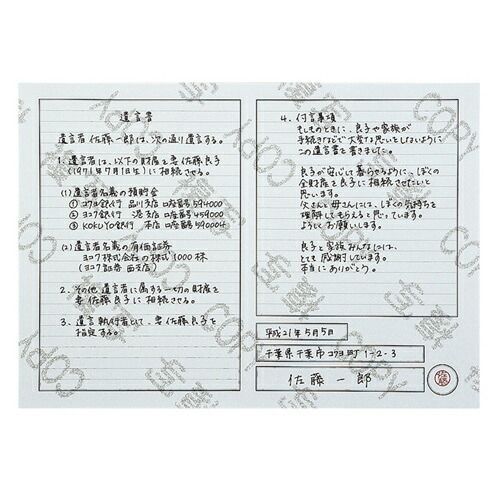 遺言書
遺言者 佐藤一郎は、次の通り遺言する。
1. 遺言者は、以下の財産を妻 佐藤良子
(1971年7月1日生)に相続させる。
(1)遺言者名義の預貯金
① コクヨ銀行 品川支店 口座番号 594000
② ヨコク銀行 港支店 口座番号 459000
③ KOKUYO銀行 本店 口座番号 594000
(2)遺言者名義の有価証券
ヨコク株式会社の株式 1000株
(ヨコク証券 西支店)
2. その他遺言者に属する一切の財産を
妻 佐藤良子に相続させる。
3. 遺言執行者として、妻 佐藤良子を
指定する。
4. 付言事項
そのときに、良子や家族が
手続きなどで大変な思いをしないように
この遺言書を書きました。
良子が安心して暮らせるように、ぼくの
全財産を良子に相続させたいと
思います。
父さんと母さんには、ぼくの気持ちを
理解してもらえると思っています。
よろしくお願いします。
良子と家族みんなには、
とても感謝しています。
本当にありがとう。
平成21年5月5日
千葉県千葉市コクヨ町1-2-3
佐藤一郎
佐藤
複写
COPY